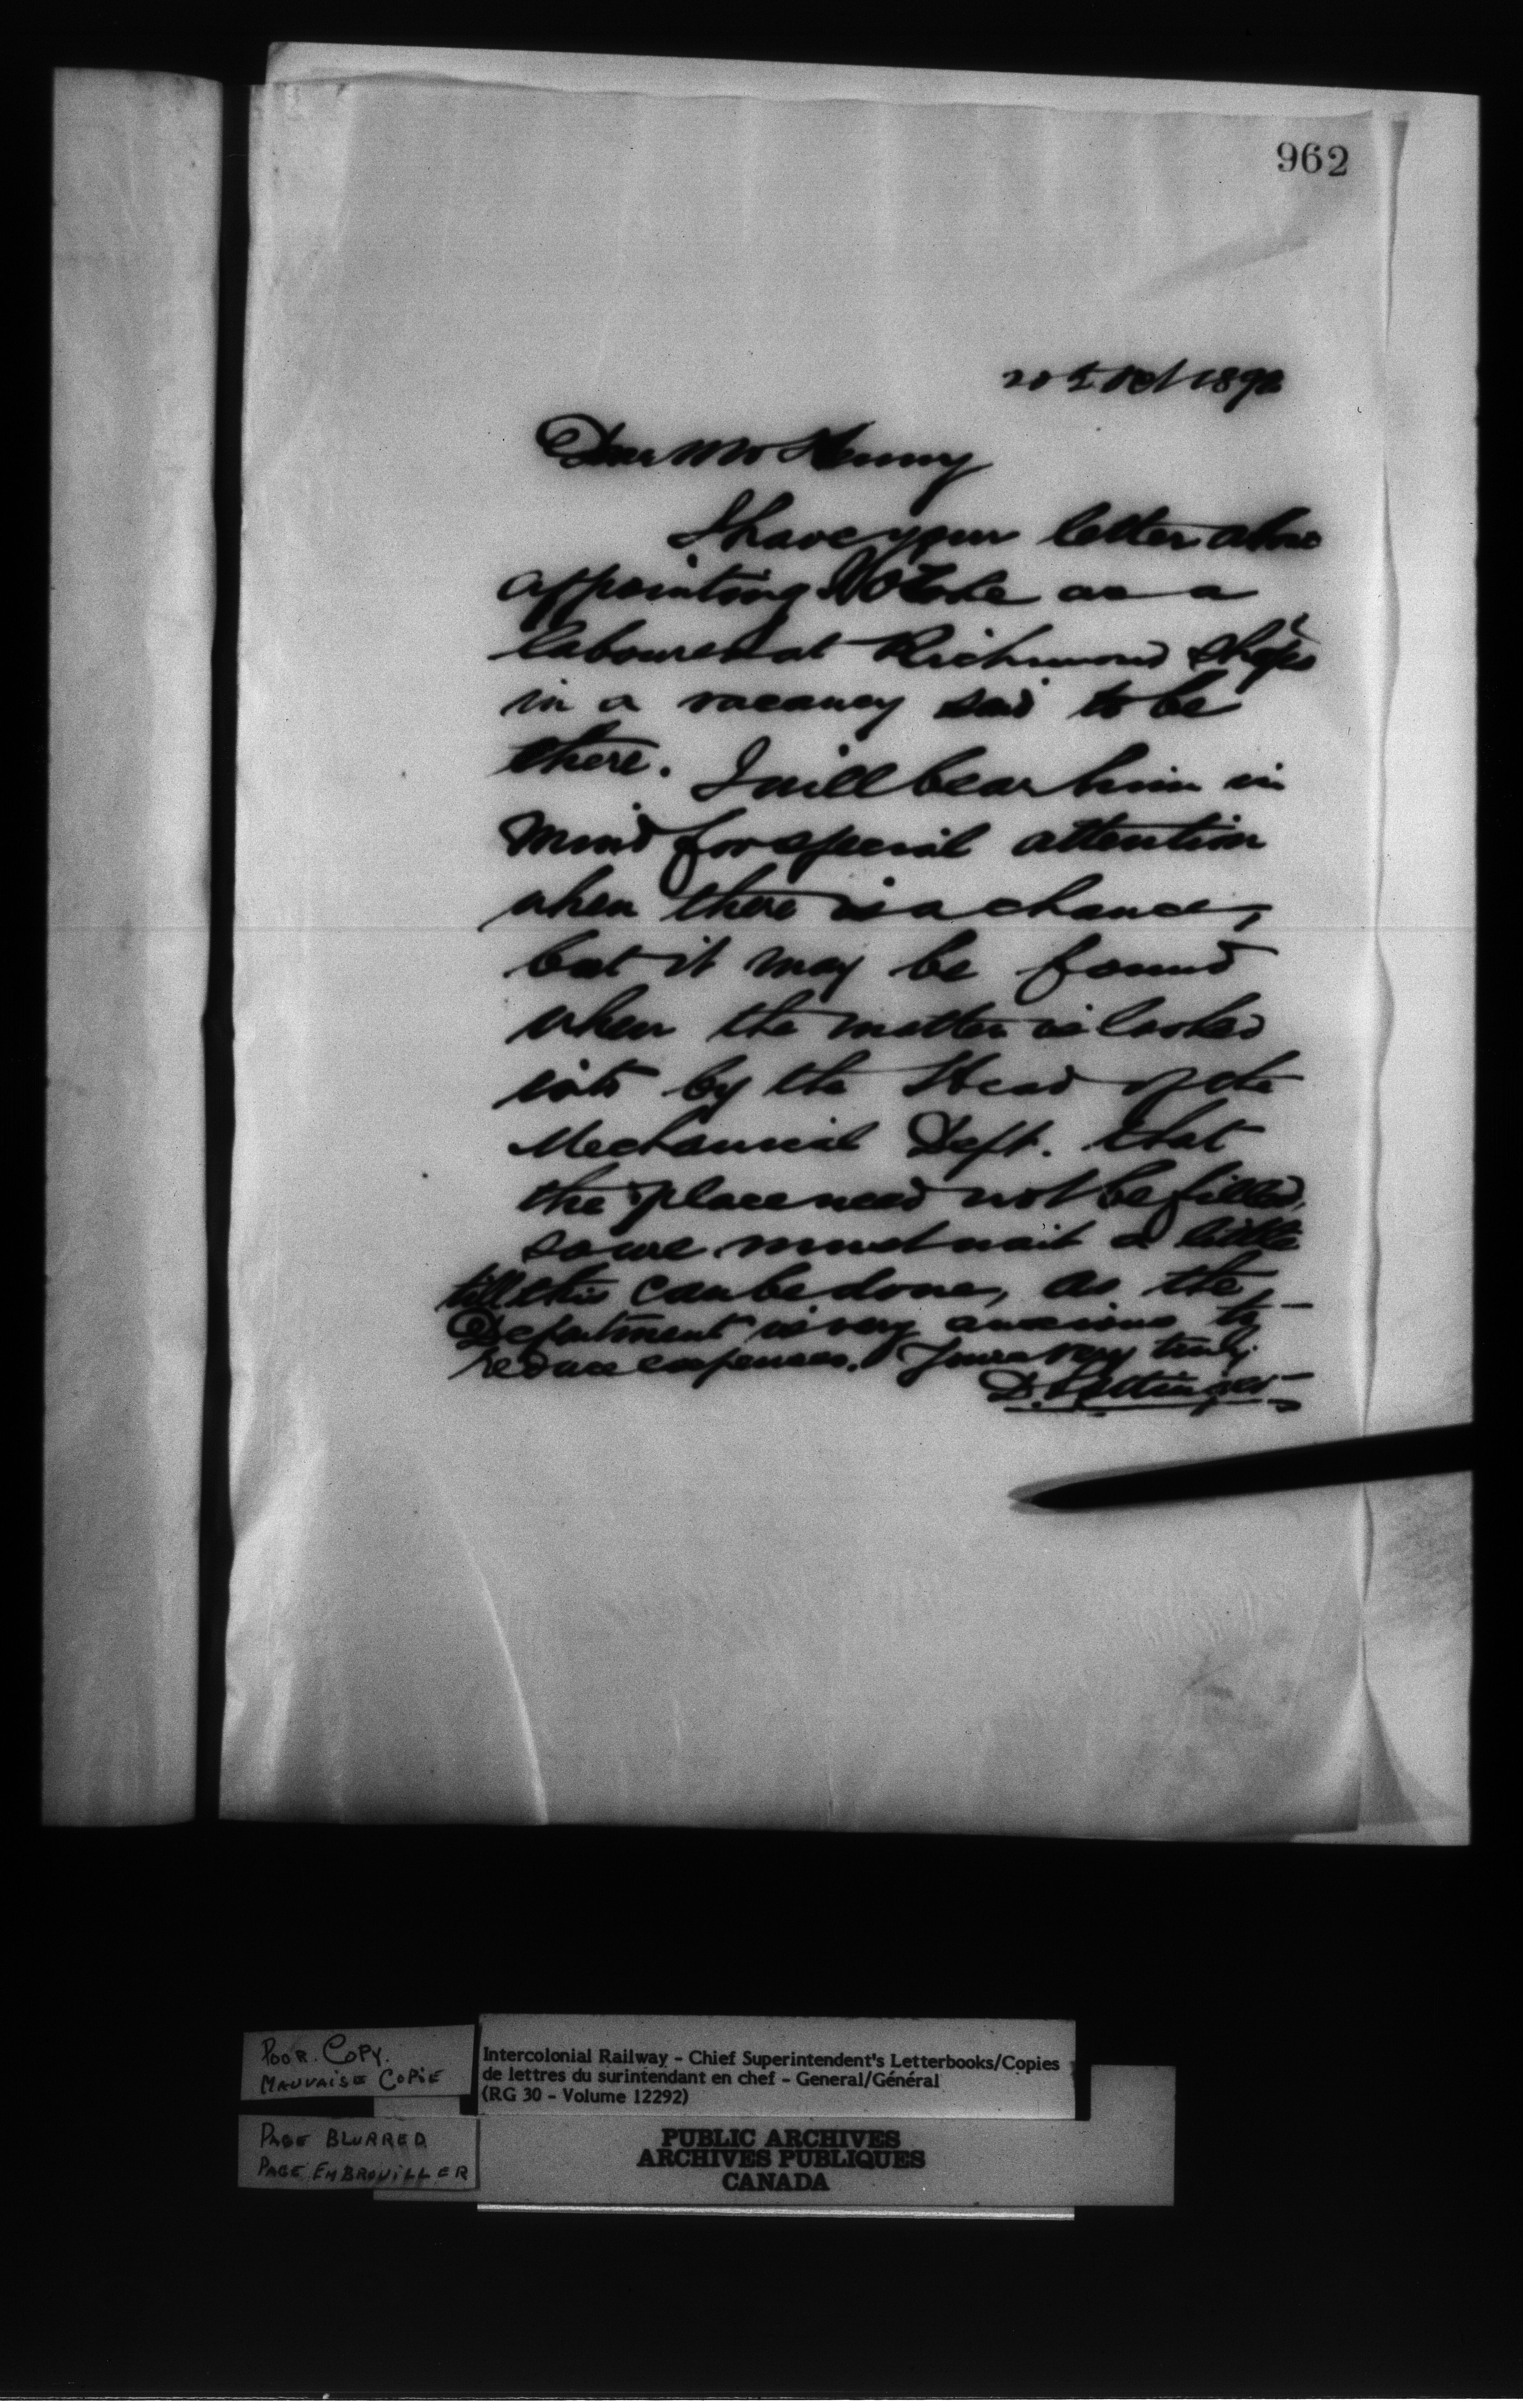 962
20th Oct 1892
Dear Mr Kenny
I have your letter about
appointing as a
labourer at Richmond Shops
in a vacancy said to be
there. I will bear him in
mind for special attention
when there is a chance,
but it may be found
when the matter is looked
into by the Head of the
Mechanical Dept. that
the place need not be filled,
so we must wait a little
till this can be done, as the
Department is very anxious to
reduce expenses. Yours very truly
D. Pottinger
POOR COPY.
MAUVAISE COPIE
Intercolonial Railway - Chief Superintendent's Letterbooks/Copies
de lettres du surintendant en chef - General/Général
(RG 30 - Volume 12292)
PAGE BLURRED
PAGE EMBROUILLER
PUBLIC ARCHIVES
ARCHIVES PUBLIQUES
CANADA